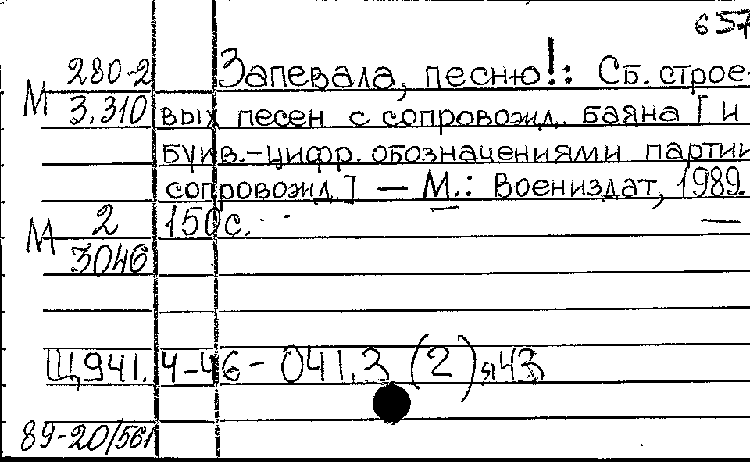 657
280-2 Запевала, песню!: Сб. строе-
М 3.310 вых песен с сопровожд. баяна [и
букв.-цифр. обозначениями партии
сопровожд.] — М.: Воениздат, 1989. —
М 2 150с.
3046
Щ941.4-46-041.3 (2)я43
89-20/561